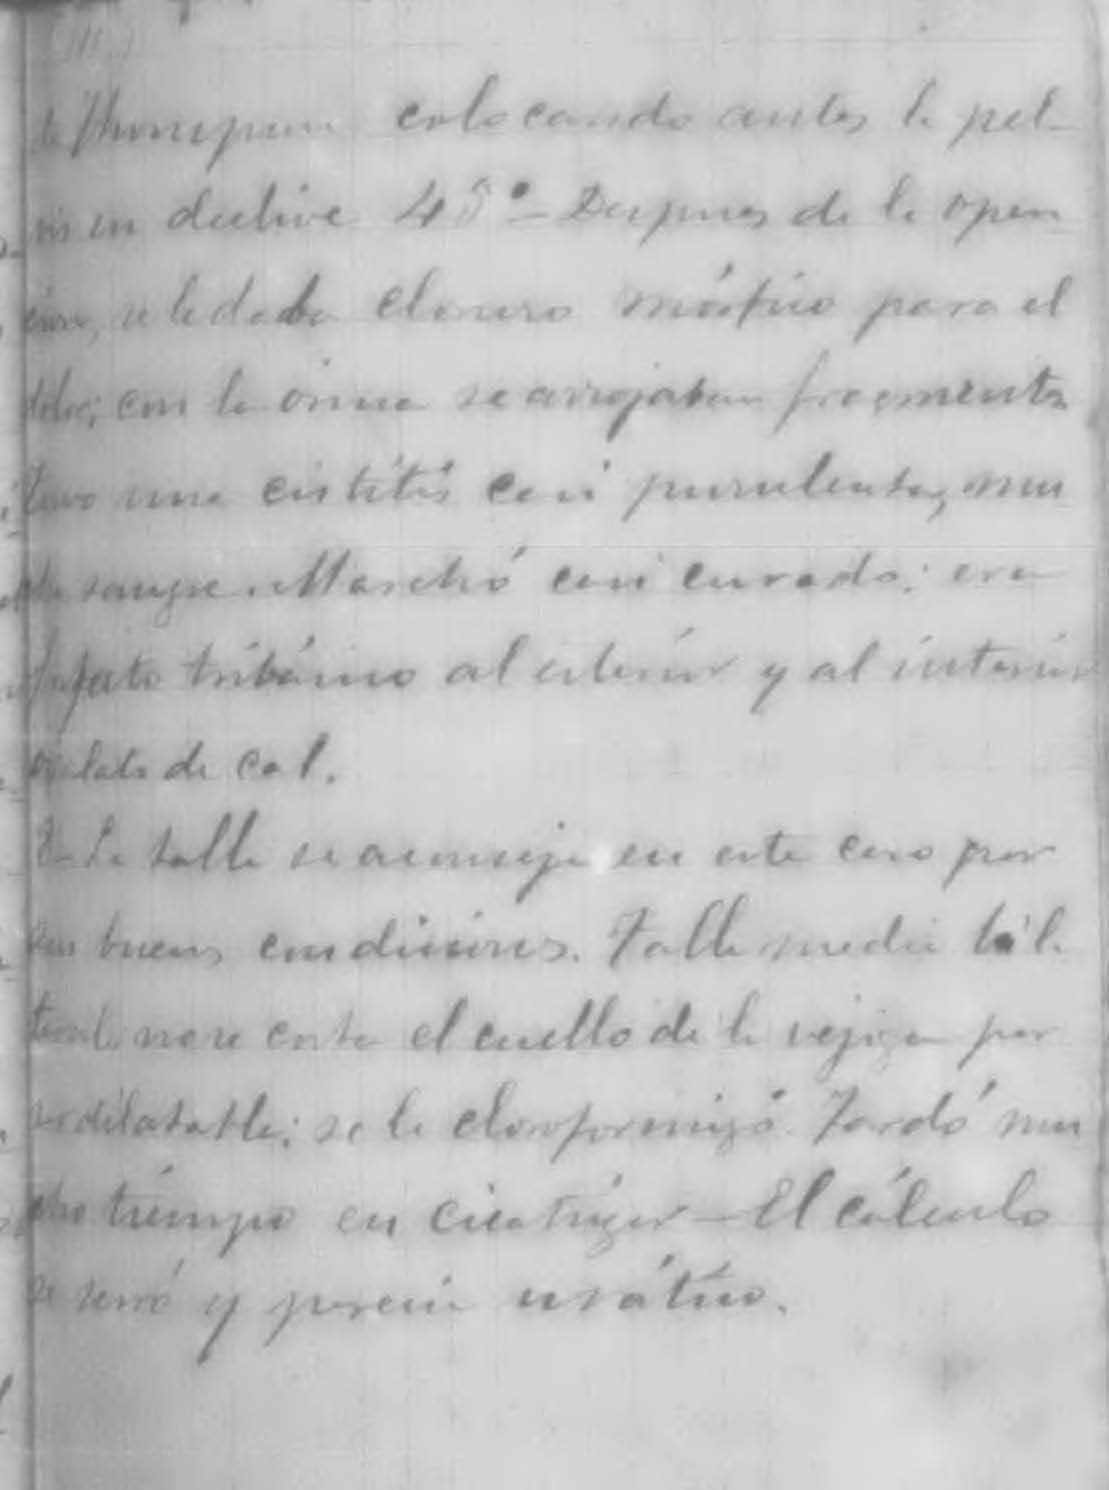 de Thompson colocando antes la pel-
vis en declive 45° — Despues de la opera
cion, se le daba cloruro mórfico para el
dolor; con la orina se arrojaban fragmentos
Tuvo una cistitis casi purulenta, mu
cha sangre. Marchó casi curado: era
fosfato tribásico al exterior y al interior
oxalato de cal.
La talla se aconseja en este caso por
sus buenas condiciones. Talla media bila
teral, no se corta el cuello de la vejiga por
ser dilatable; se le cloroformizó. Tardó mu
cho tiempo en cicatrizar — El cálculo
se serró y parecía urático.